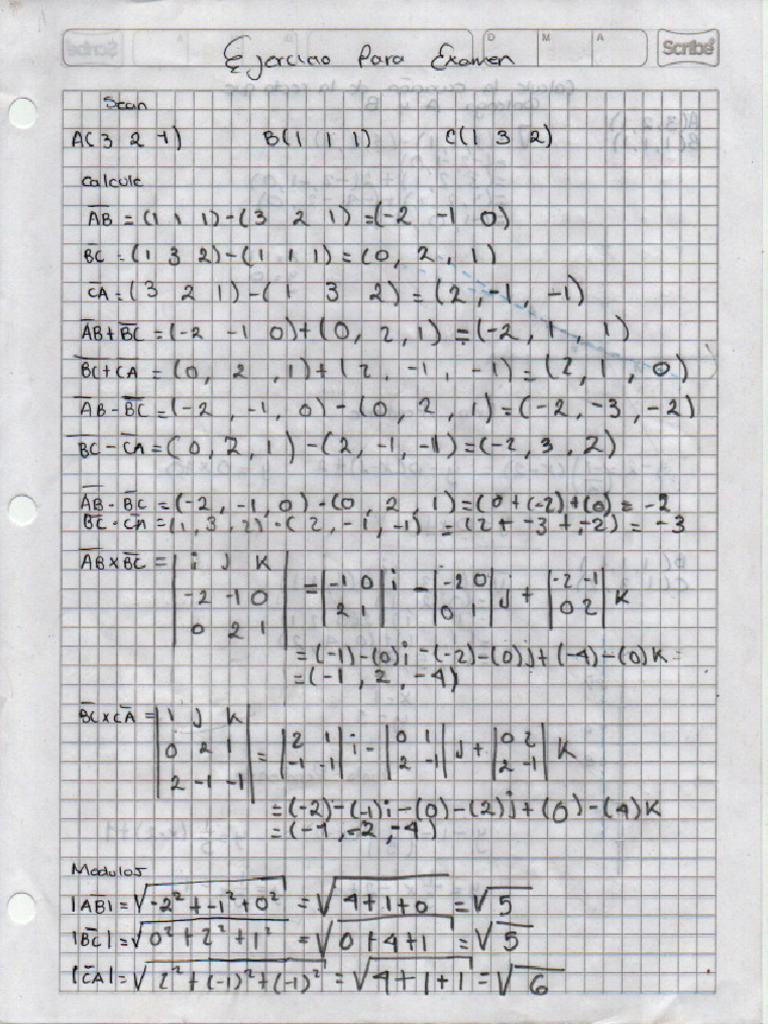 Scribe D M A Scribe
Ejercicio Para Examen
Sean
A(3 2 1) B(1 1 1) C(1 3 2)
Calcule
AB = (1 1 1)-(3 2 1) =(-2 -1 0)
BC = (1 3 2)-(1 1 1)=(0, 2, 1)
CA=(3 2 1)-(1 3 2)=(2,-1, -1)
AB+BC =(-2 -1 0)+(0, 2, 1) =(-2, 1, 1)
BC+CA =(0, 2 ,1)+(2, -1, -1)=(2, 1, 0)
AB-BC=(-2, -1, 0)-(0, 2, 1)=(-2, -3, -2)
BC-CA=(0,2,1)-(2,-1,-1)=(-2,3,2)
AB·BC=(-2,-1,0)·(0, 2, 1)=(0+(-2)+(0) = -2
BC·CA=(1,3,2)·(2,-1,-1) =(2+ -3+,-2) = -3
AB×BC = | i J K | = |-1 0| i - |-2 0| J + |-2 -1| K
-2 -1 0 2 1 0 1 0 2
0 2 1
=(-1)-(0)i-(-2)-(0)j+(-4)-(0)K
=(-1, 2, -4)
BC×CA = | i J K |
0 2 1 = |2 1| i - |0 1| J + |0 2| K
2 -1 -1 -1 -1 2 -1 2 -1
=(-2)-(-1)i-(0)-(2)j+(0)-(4)K
=(-1,-2,-4)
Modulos
|AB|=√-2²+-1²+0² =√4+1+0 =√5
|BC|=√0²+2²+1² =√0+4+1 =√5
|CA|=√2²+(-1)²+(-1)² =√4+1+1 =√6